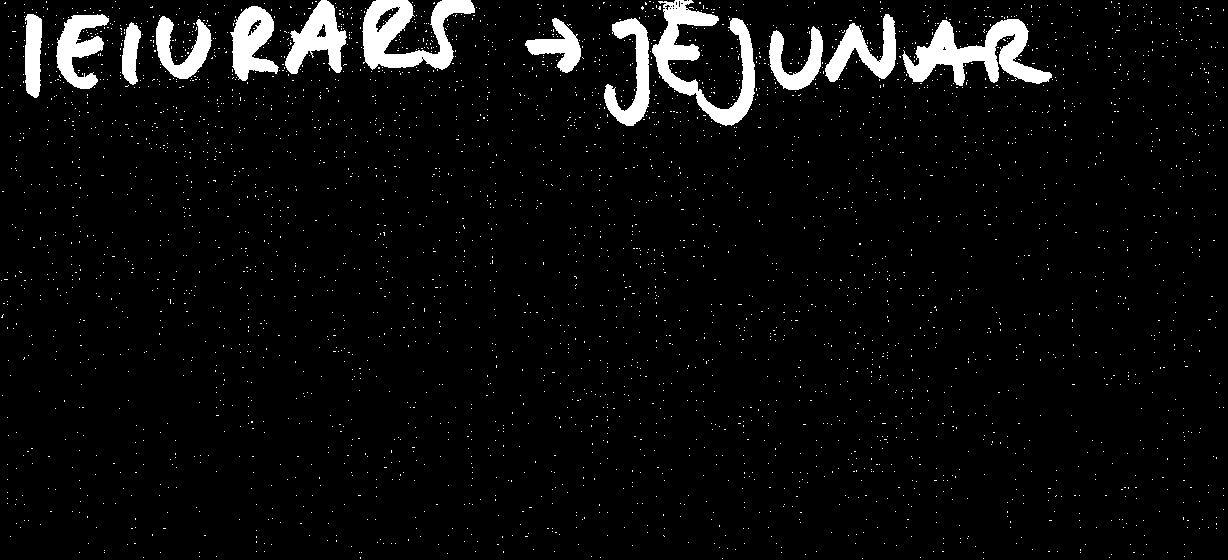 IEIURARS → JEJUNAR